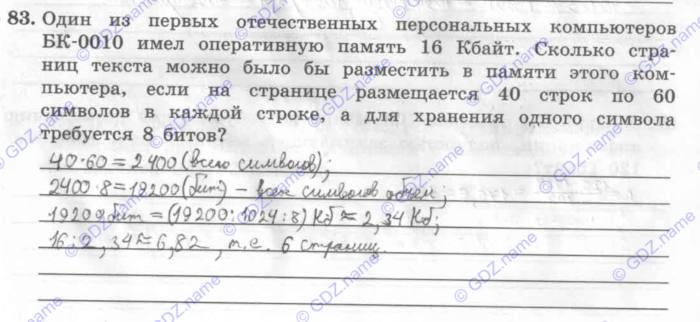 83. Один из первых отечественных персональных компьютеров
БК-0010 имел оперативную память 16 Кбайт. Сколько стра-
ниц текста можно было бы разместить в памяти этого ком-
пьютера, если на странице размещается 40 строк по 60
символов в каждой строке, а для хранения одного символа
требуется 8 битов?
40·60=2400(всего символов);
2400·8=19200(бит) – всех символов объем;
19200бит=(19200:1024:8) Кб ≈ 2,34 Кб;
16:2,34≈6,82, т.е. 6 страниц.
© GDZ.name